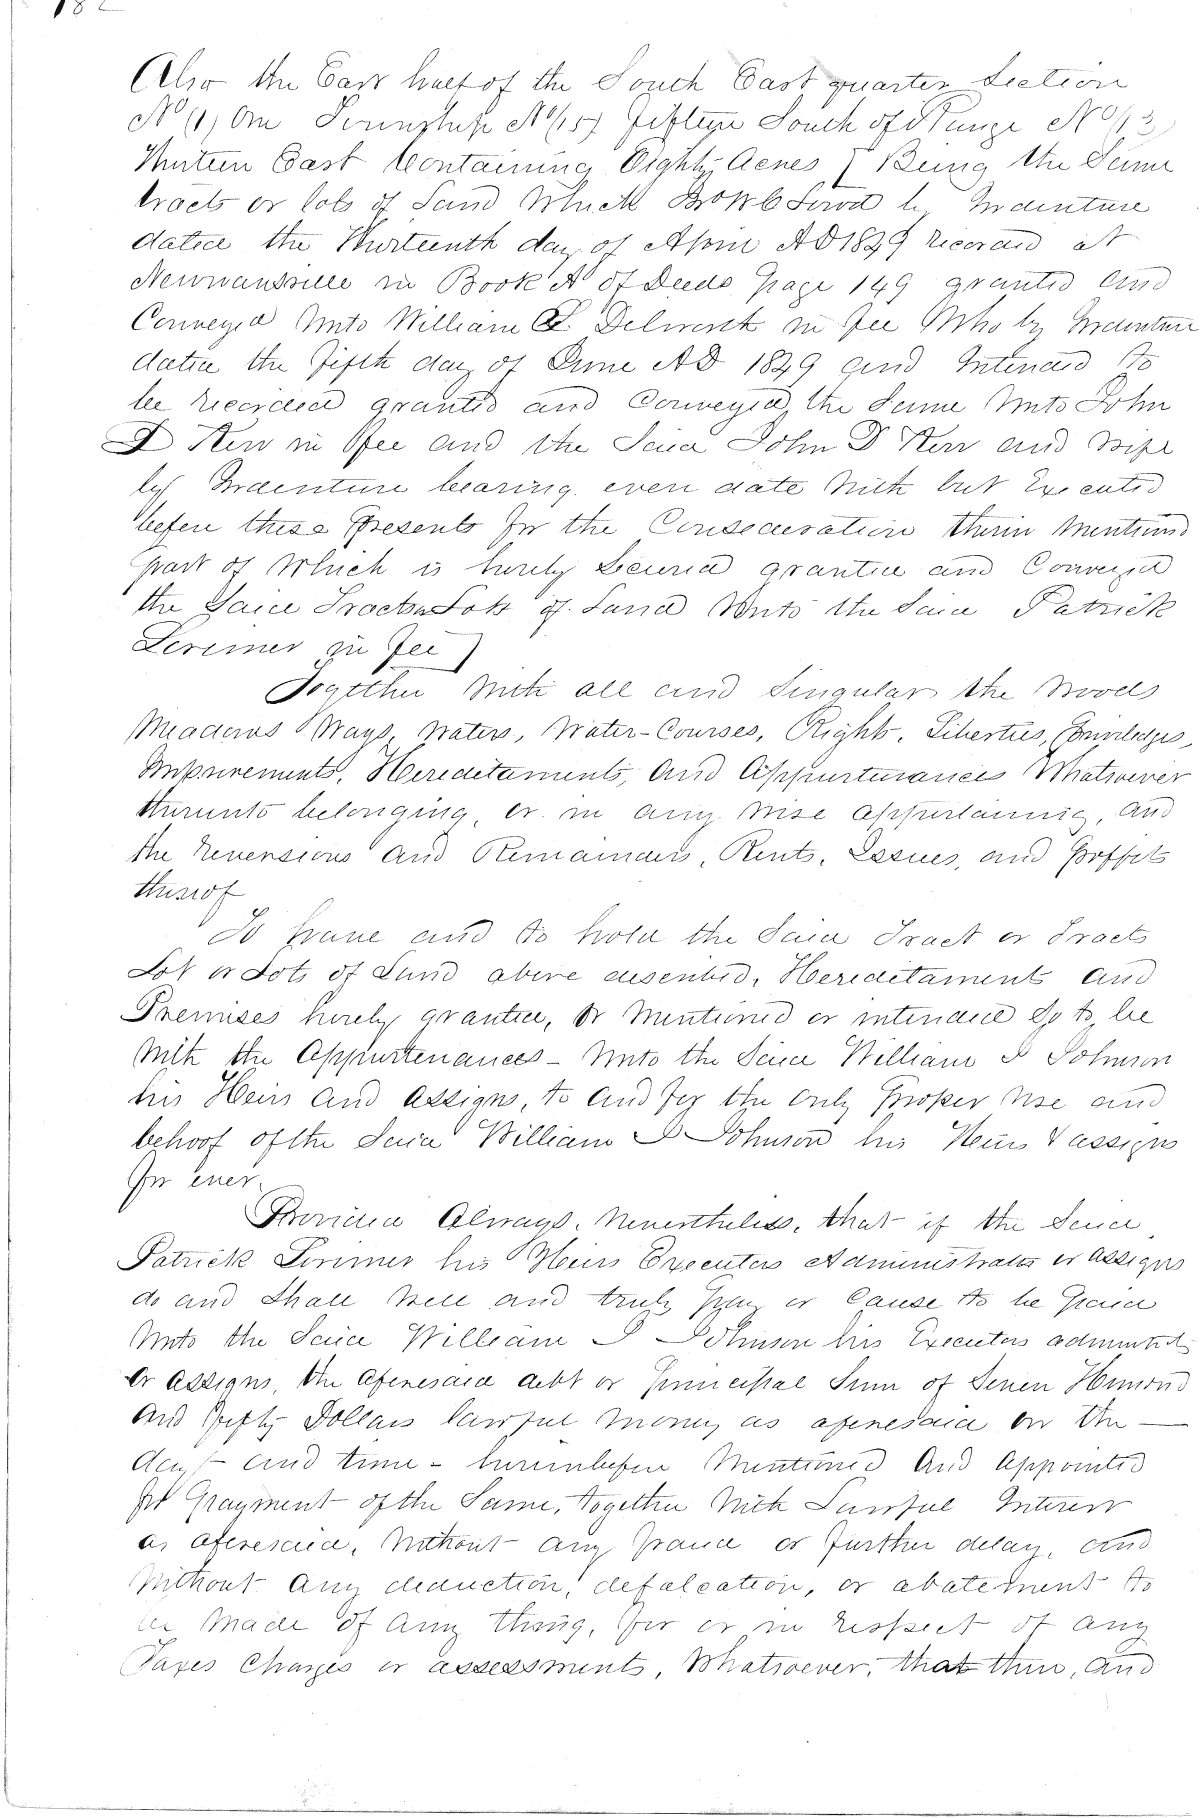 182
Also the East half of the South East quarter Section
No (1) One Township No (15) Fifteen South of Range No (13)
Thirteen East Containing Eighty Acres [ Being the Same
tracts or lots of Land Which by Indenture
dated the Thirteenth day of April AD 1849 recorded at
Newnansville in Book A of Deeds page 149 granted and
Conveyed Unto William Dilworth in fee Who by Indenture
dated the fifth day of June AD 1849 and Intended to
be recorded granted and Conveyed the Same Unto John
D Kerr in fee and the Said John D Kerr and Wife
by Indenture bearing even date With but Executed
before these Presents For the Consideration therin Mentiond
part of Which is herely Secured granted and Conveyed
the Said Tracts Lots of Land Unto the Said Patrick
Lorimer in fee ]
Together With all and Singular the Woods
Meadows Ways, Waters, Water-Courses, Rights, Liberties, Priviledges,
Improvements, Hereditaments, And Appurtenances Whatsoever
thereunto belonging, or in any Wise appertaining, and
the reversions and Remainders, Rents, Issues, and Proffits
thereof
To have and to hold the Said Tract or Tracts
Lot or Lots of Land above described, Hereditaments and
Premises herely granted, Or Mentioned or intended So to be
With the Appurtenances - Unto the Said William J Johnson
his Heirs and Assigns, to and for the only Proper Use and
behoof of the Said William J Johnson his Heirs & assigns
For ever.
Provided Always, Nevertheless, that if the Said
Patrick Lorimer his Heirs Executors Administrators or assigns
do and Shall Well and truly Pay or Cause to be Paid
Unto the Said William J Johnson his Executors
Or Assigns, the aforesaid debt or Principal Sum of Seven Hundred
And Fifty Dollars lawful Money as aforesaid on the —
day - and time - hereinbefore Mentioned And Appointed
for Payment of the Same, together With Lawful Interest
as aforesaid, Without any fraud or further delay, and
Without any deduction, defalcation, or abatement to
be Made of Any thing, for or in respect of any
Taxes Charges or assessments, Whatsoever, that then, And